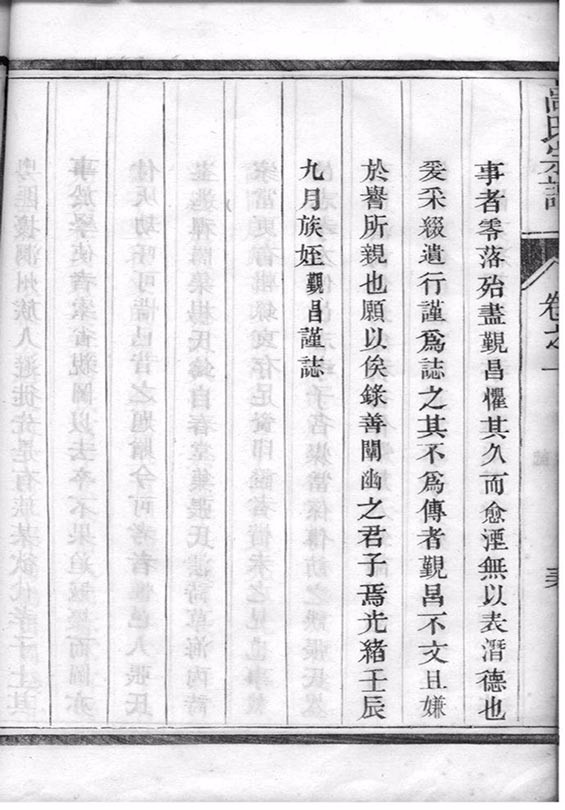 事者零落殆盡觀昌懼其久而愈湮無以表潛德也
爰采綴遺行謹爲誌之其不爲傳者觀昌不文且嫌
於譽所親也願以俟錄善闡幽之君子焉光緒壬辰
九月族姪觀昌謹誌
氏宗譜
卷之一